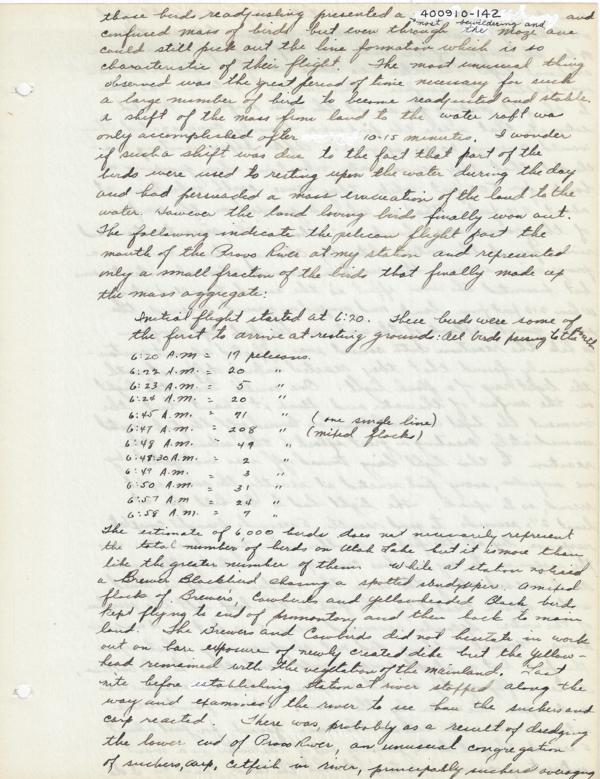 400910-142
those birds readjusting presented a most bewildering and and
confused mass of birds but even through the maze one
could still pick out the line formation which is so
characteristic of their flight. The most unusual thing
observed was the great period of time necessary for such
a large number of birds to become readjusted and stable.
A shift of the mass from land to the water raft was
only accomplished after 10-15 minutes. I wonder
if such a shift was due to the fact that part of the
birds were used to resting upon the water during the day
and had persuaded a mass evacuation of the land to the
water. However the land loving birds finally won out.
The following indicate the pelican flight past the
mouth of the Provo River at my station and represented
only a small fraction of the birds that finally made up
the mass aggregate:
Initial flight started at 6:20. These birds were some of
the first to arrive at resting grounds: All birds passing to the
6:20 A.M = 19 pelicans.
6:22 A.M. = 20 "
6:23 A.M = 5 "
6:24 A.M. = 20 "
6:45 A.M. = 71 " (one single line)
6:47 A.M. = 208 " (mixed flocks)
6:48 A.M. = 49 "
6:48:30 A.M. = 2 "
6:49 A.M. = 3 "
6:50 A.M. = 31 "
6:57 A.M = 24 "
6:58 A.M. = 7 "
The estimate of 6000 birds does not necessarily represent
the total number of birds on Utah Lake but it is more than
like the greater number of them. While at station noticed
a Brewer Blackbird chasing a spotted sandpiper. A mixed
flock of Brewers, Cowbirds and yellowheaded Black birds
kept flying to end of promontory and then back to main
land. The Brewers and Cowbirds did not hesitate in work
out on bare exposure of newly created dike but the yellow-
head remained with the vegetation of the mainland. Last
nite before establishing station at river stopped along the
way and examined the river to see how the suckers and
carp reacted. There was probably as a result of dredging
the lower end of Provo River, an unusual congregation
of suckers, carp, catfish in river, principally suckers averaging